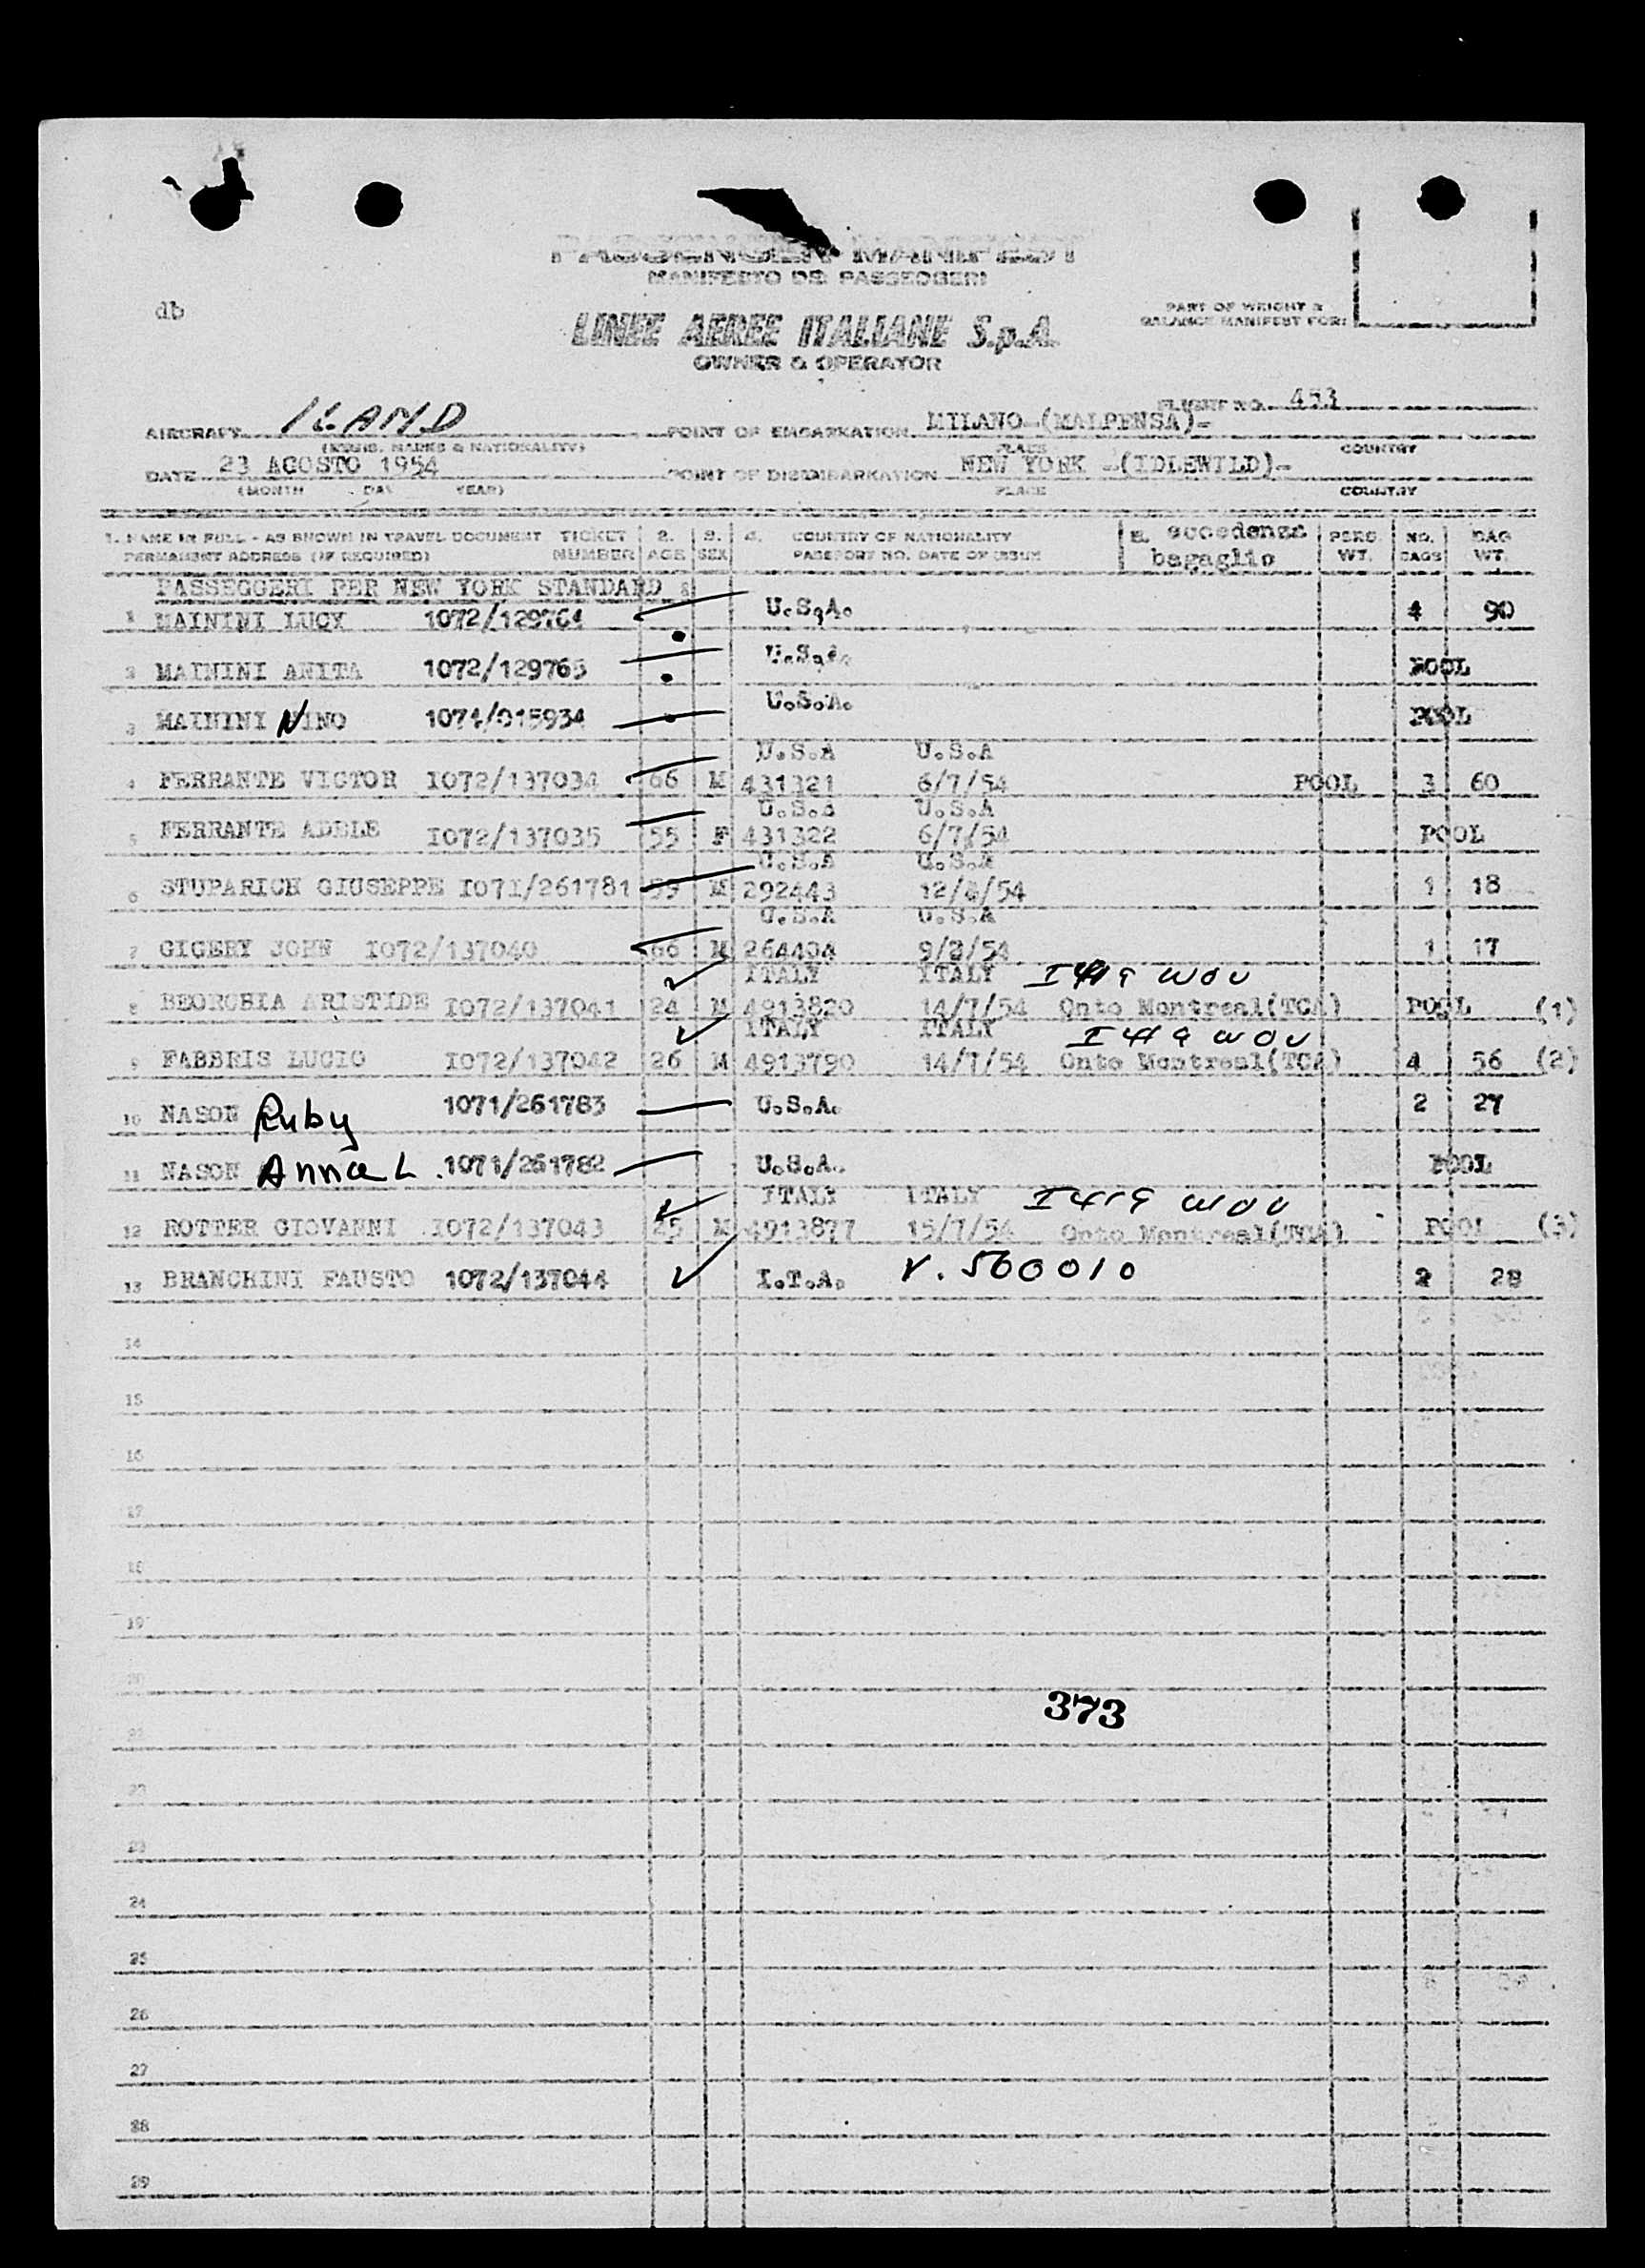 PASSENGER MANIFEST
MANIFESTO DEI PASSEGGERI
db
PART OF WEIGHT &
BALANCE MANIFEST FOR:
LINEE AEREE ITALIANE S.p.A.
OWNER & OPERATOR
FLIGHT NO. 453
AIRCRAFT ILAND POINT OF EMBARKATION MILANO-(MALPENSA)-
(REGIS. MARKS & NATIONALITY) PLACE COUNTRY
DATE 23 AGOSTO 1954 POINT OF DISEMBARKATION NEW YORK -(IDLEWILD)-
(MONTH DAY YEAR) PLACE COUNTRY
1. NAME IN FULL - AS SHOWN IN TRAVEL DOCUMENT TICKET 2. 3. 4. COUNTRY OF NATIONALITY 5. eccedenza PERS. NO. BAG
PERMANENT ADDRESS (IF REQUIRED) NUMBER AGE SEX PASSPORT NO. DATE OF ISSUE bagaglio WT. BAGS WT.
PASSEGGERI PER NEW YORK STANDARD :
1 MAININI LUCY 1072/129764 U.S.A. 4 90
2 MAININI ANITA 1072/129765 U.S.A. POOL
3 MAININI NINO 1071/015934 U.S.A. POOL
U.S.A U.S.A
4 FERRANTE VICTOR I072/137034 66 M 431321 6/7/54 POOL 3 60
U.S.A U.S.A
5 FERRANTE ADELE I072/137035 55 F 431322 6/7/54 POOL
U.S.A U.S.A
6 STUPARICH GIUSEPPE I071/261781 59 M 292443 12/4/54 1 18
U.S.A U.S.A
7 GIGERY JOHN I072/137040 66 M 264404 9/3/54 1 17
ITALY ITALY
8 BEORCHIA ARISTIDE I072/137041 24 M 4913820 14/7/54 Onto Montreal(TCA) POOL (1)
ITALY ITALY
9 FABBRIS LUCIO I072/137042 26 M 4913790 14/7/54 Onto Montreal(TCA) 4 56 (2)
10 NASON Ruby 1071/261783 U.S.A. 2 27
11 NASON Anna L. 1071/261782 U.S.A. POOL
ITALY ITALY
12 ROTTER GIOVANNI I072/137043 25 M 4913877 15/7/54 Onto Montreal(TCA) POOL (3)
13 BRANCHINI FAUSTO 1072/137044 I.T.A. V. 560010 2 28
14
15
16
17
18
19
20
373
21
22
23
24
25
26
27
28
29